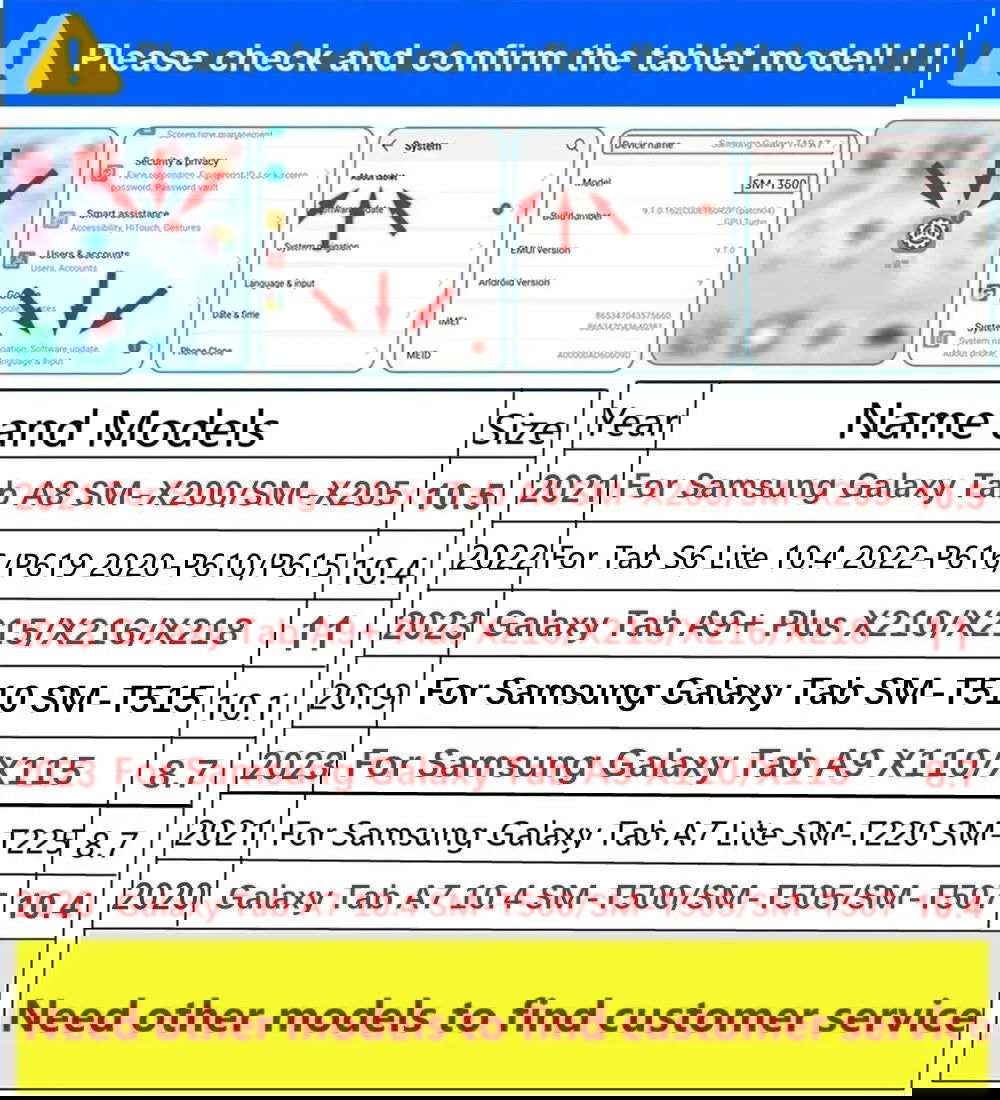 Please check and confirm the tablet model! ! !
Screen time management
Security & privacy
Face recognition, Fingerprint ID, Lock screen password, Password vault
Smart assistance
Accessibility, HiTouch, Gestures
Users & accounts
Users, Accounts
System navigation
Language & input
Date & time
Phone Clone
System
About tablet
Software update
Device name
Model
SM-T360
Build number
GPU Turbo
EMUI version
9.1.0
Android version
9
IMEI
865347043575660
MEID
Name and Models
Size
Year
2021 For Samsung Galaxy Tab A8 SM-X200/SM-X205 10.5
2022 For Tab S6 Lite 10.4 2022-P616/P619 2020-P610/P615 10.4
2023 Galaxy Tab A9+ Plus X210/X215/X216/X218 11
2019 For Samsung Galaxy Tab SM-T510 SM-T515 10.1
2023 For Samsung Galaxy Tab A9 X110/X115 8.7
2021 For Samsung Galaxy Tab A7 Lite SM-T220 SM-T225 8.7
2020 Galaxy Tab A7 10.4 SM-T500/SM-T505/SM-T507 10.4
Need other models to find customer service